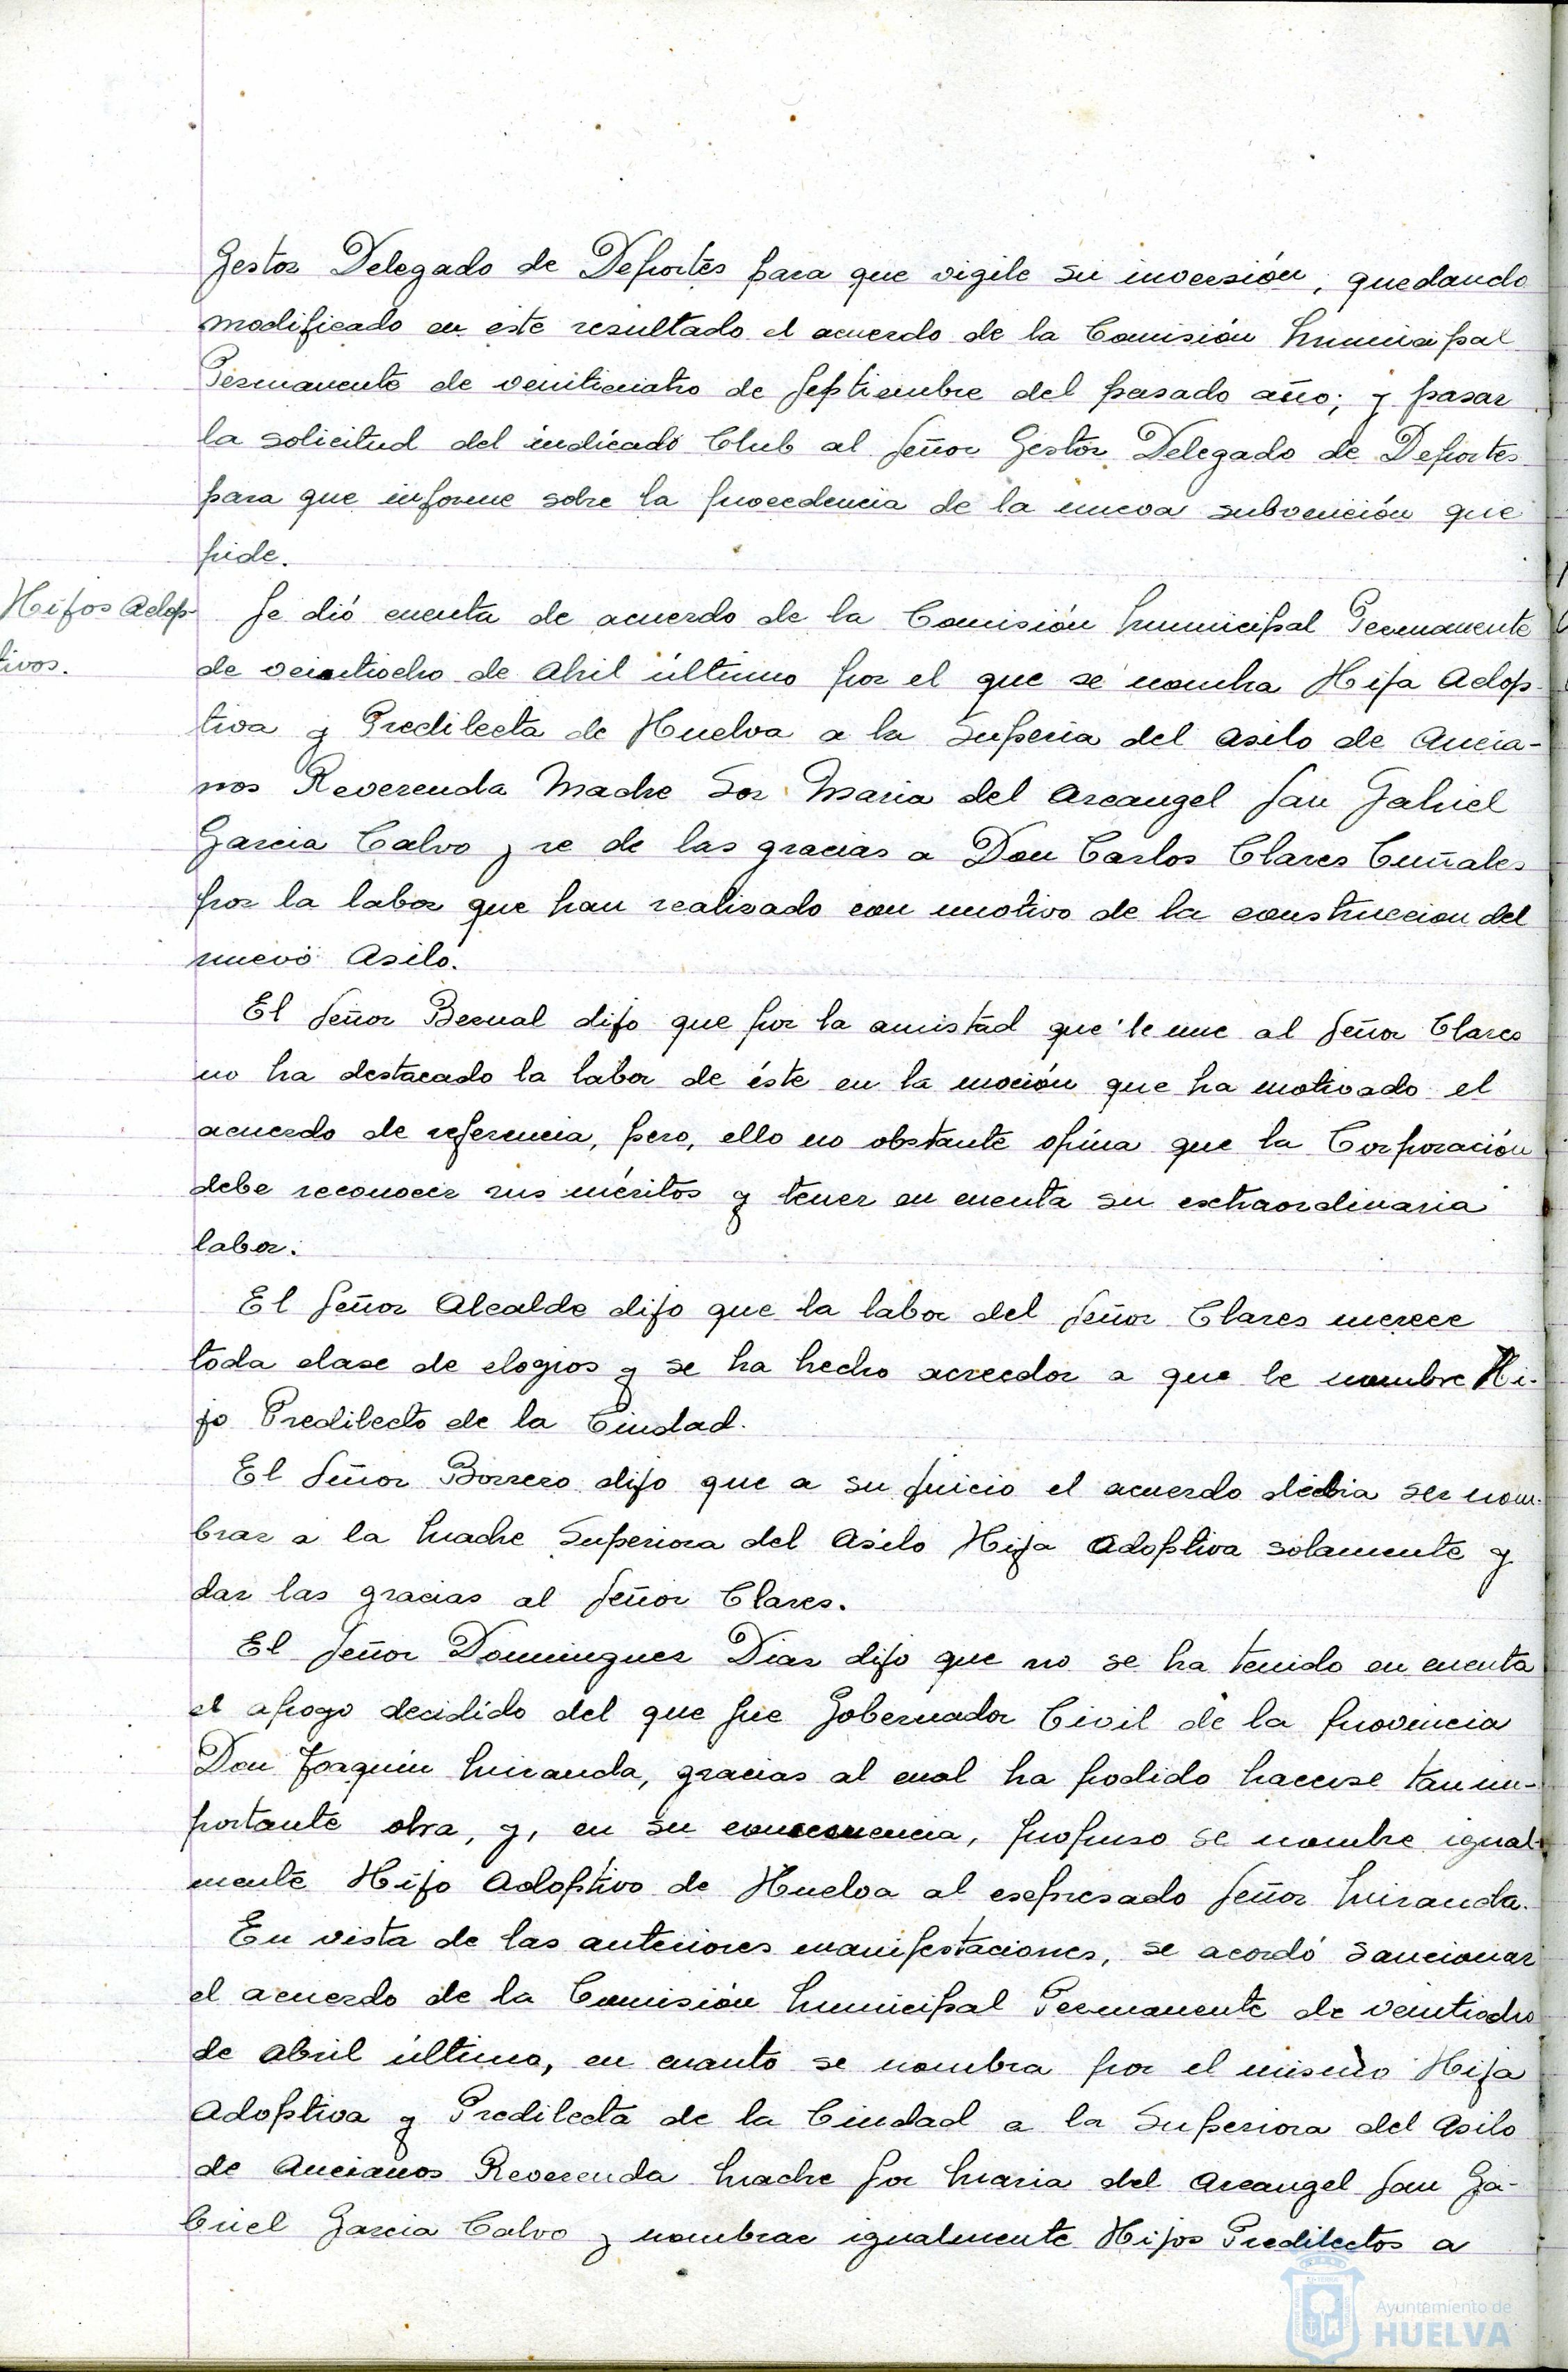 Gestor Delegado de Deportes para que vigile su inversión, quedando
modificado en este resultado el acuerdo de la Comisión Municipal
Permanente de veinticuatro de Septiembre del pasado año; y pasar
la solicitud del indicado Club al Señor Gestor Delegado de Deportes
para que informe sobre la procedencia de la nueva subvención que
pide.
Hijos Adop-
tivos.
Se dió cuenta de acuerdo de la Comisión Municipal Permanente
de veintiocho de Abril último por el que se nombra Hija Adop-
tiva y Predilecta de Huelva a la Superia del Asilo de Ancia-
nos Reverenda Madre Sor Maria del Arcangel San Gabriel
Garcia Calvo y se de las gracias a Don Carlos Clares Cuñales
por la labor que han realizado con motivo de la construccion del
nuevo Asilo.
El Señor Bernal dijo que por la amistad que le une al Señor Clares
no ha destacado la labor de éste en la moción que ha motivado el
acuerdo de referencia, pero, ello no obstante opina que la Corporación
debe reconocer sus méritos y tener en cuenta su extraordinaria
labor.
El Señor Alcalde dijo que la labor del Señor Clares merece
toda clase de elogios y se ha hecho acreedor a que le nombre Hi-
jo Predilecto de la Ciudad.
El Señor Borrero dijo que a su juicio el acuerdo debia ser nom-
brar a la Madre Superiora del Asilo Hija Adoptiva solamente y
dar las gracias al Señor Clares.
El Señor Dominguez Diaz dijo que no se ha tenido en cuenta
el apoyo decidido del que fue Gobernador Civil de la provincia
Don Joaquin Miranda, gracias al cual ha podido hacerse tan im-
portante obra, y, en su consecuencia, propuso se nombre igual-
mente Hijo Adoptivo de Huelva al expresado Señor Miranda.
En vista de las anteriores manifestaciones, se acordó sancionar
el acuerdo de la Comisión Municipal Permanente de veintiocho
de Abril último, en cuanto se nombra por el mismo Hija
Adoptiva y Predilecta de la Ciudad a la Superiora del Asilo
de Ancianos Reverenda Madre Sor Maria del Arcangel San Ga-
briel Garcia Calvo y nombrar igualmente Hijos Predilectos a
Ayuntamiento de
HUELVA